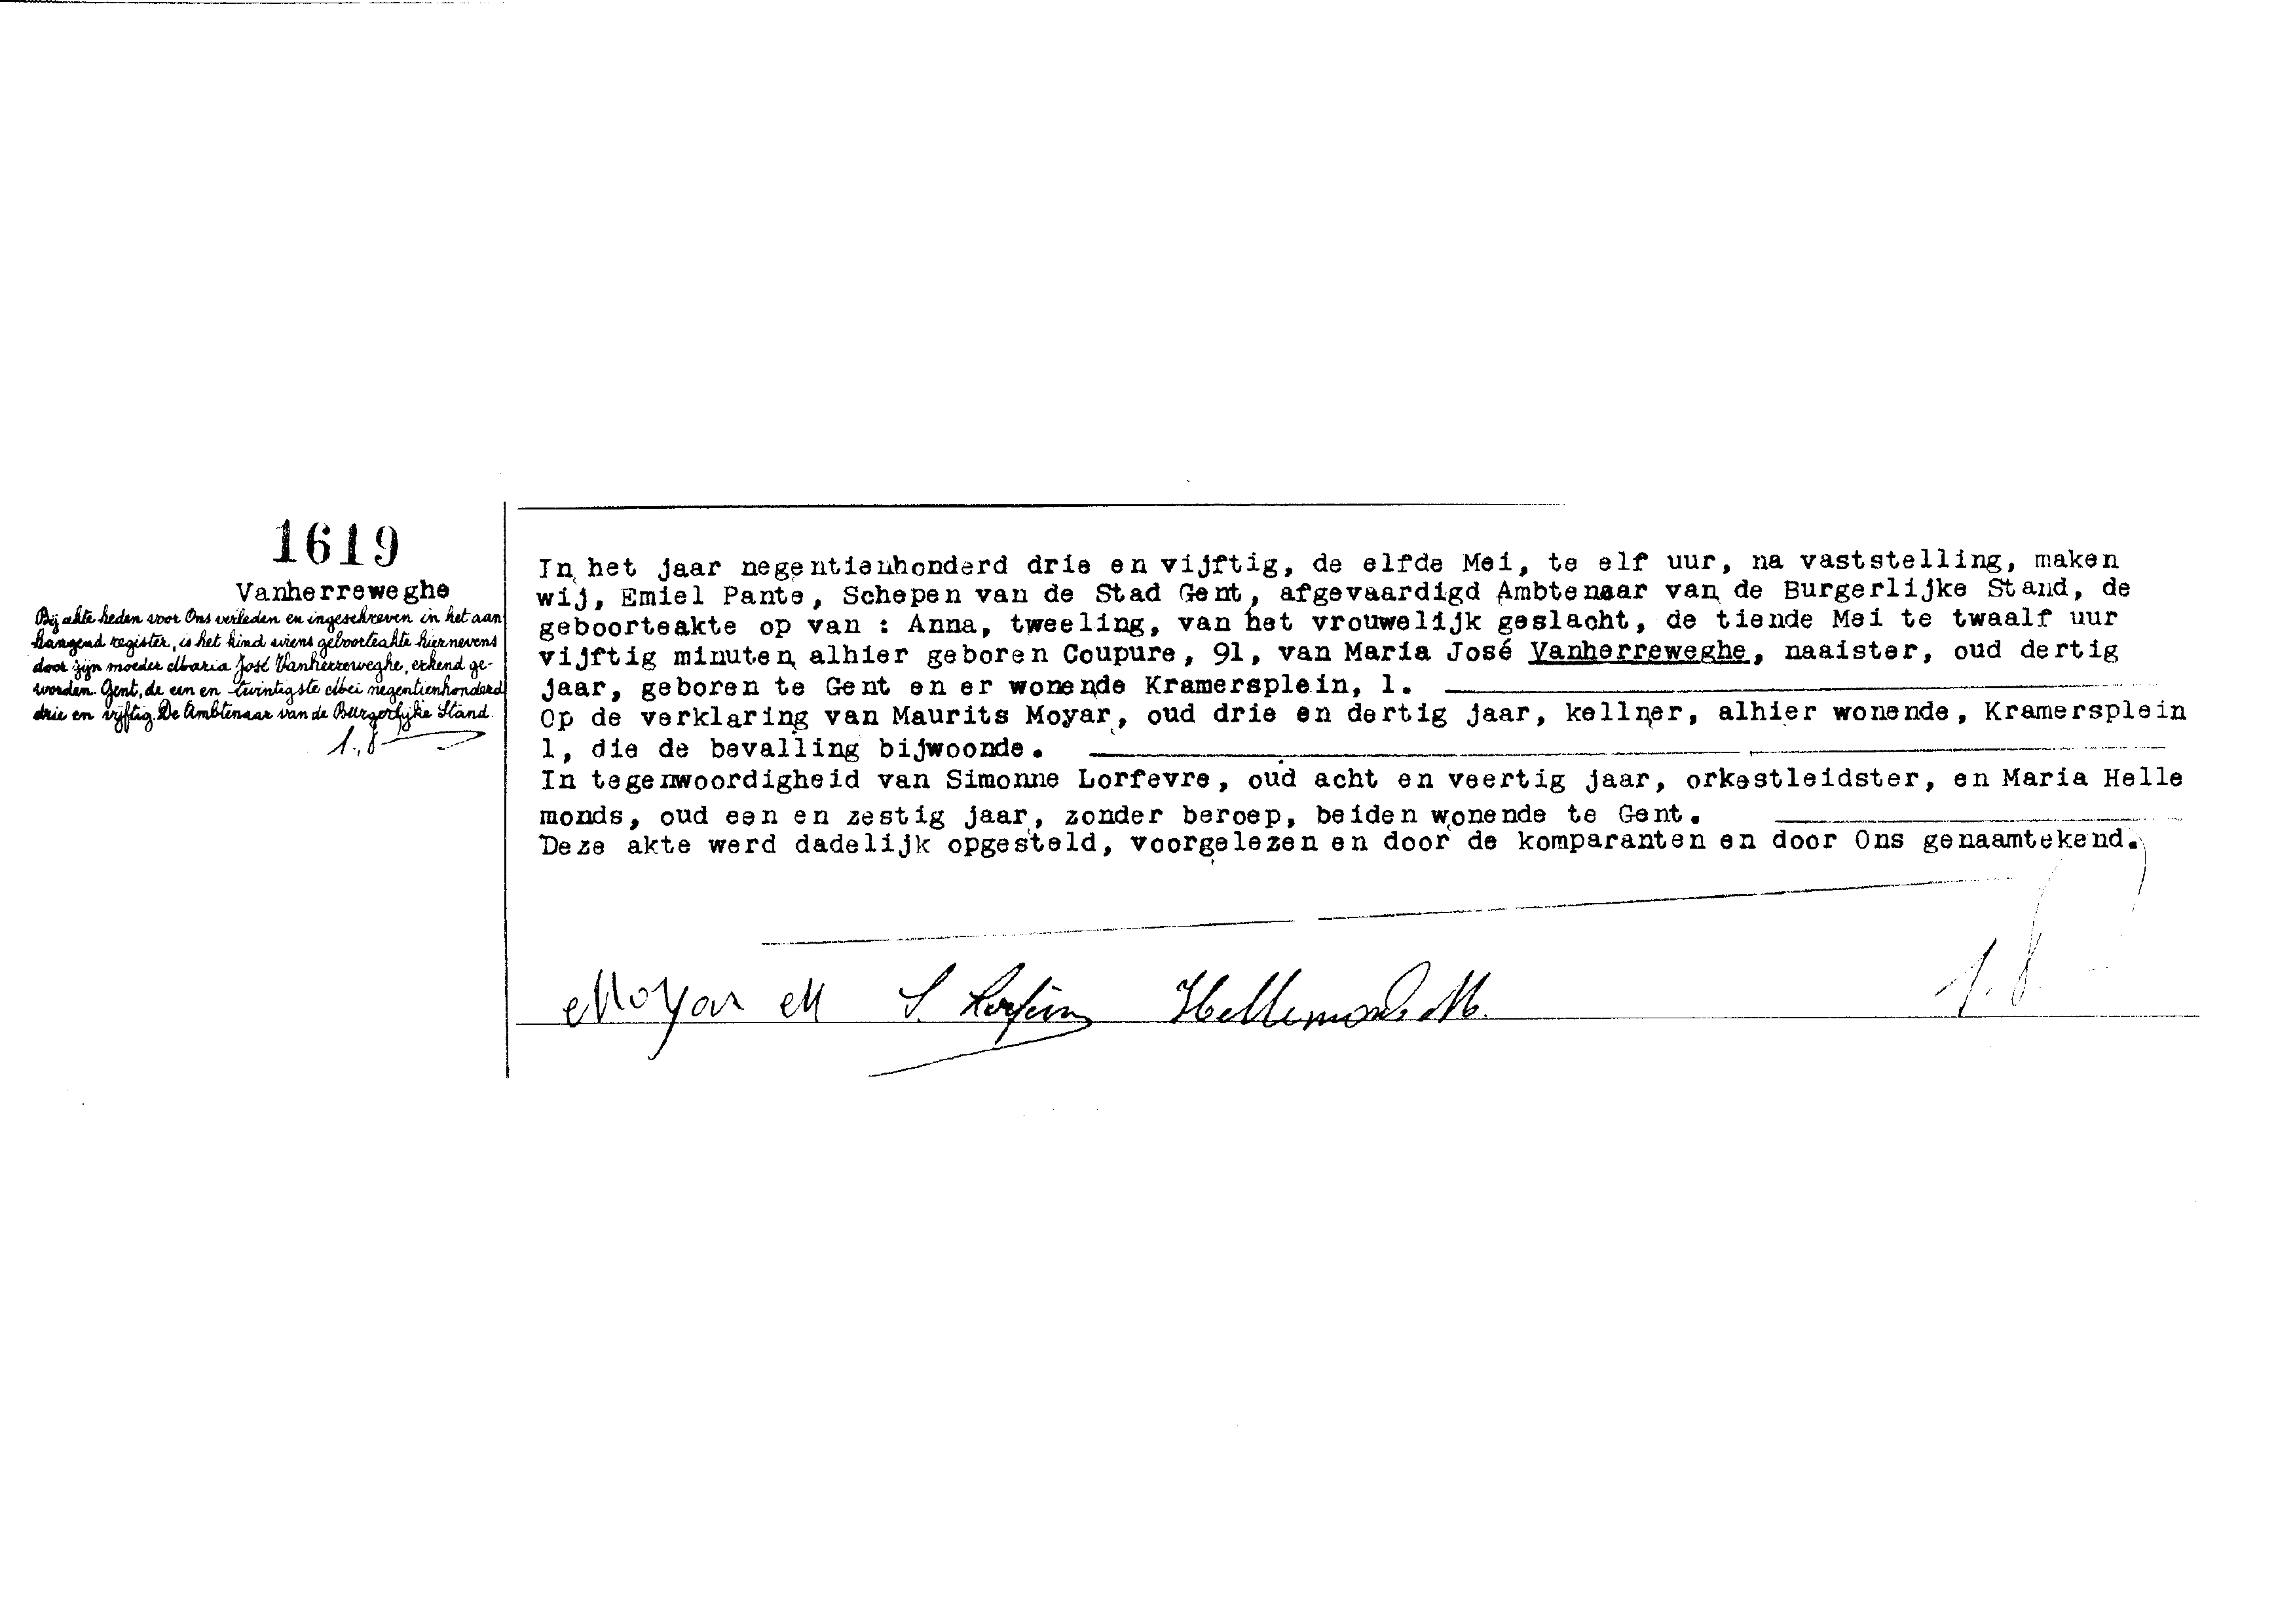 1619
Vanherreweghe
Bij akte heden voor Ons verleden en ingeschreven in het aan
hangend register, is het kind wiens geboorteakte hiernevens
door zijn moeder Maria José Vanherreweghe, erkend ge-
worden. Gent, de een en twintigste Mei negentienhonderd
drie en vijftig. De Ambtenaar van de Burgerlijke Stand.
In het jaar negentienhonderd drie en vijftig, de elfde Mei, te elf uur, na vaststelling, maken
wij, Emiel Pante, Schepen van de Stad Gent, afgevaardigd Ambtenaar van de Burgerlijke Stand, de
geboorteakte op van : Anna, tweeling, van het vrouwelijk geslacht, de tiende Mei te twaalf uur
vijftig minuten alhier geboren Coupure, 91, van Maria José Vanherreweghe, naaister, oud dertig
jaar, geboren te Gent en er wonende Kramersplein, 1.
Op de verklaring van Maurits Moyar, oud drie en dertig jaar, kellner, alhier wonende, Kramersplein
1, die de bevalling bijwoonde.
In tegenwoordigheid van Simonne Lorfevre, oud acht en veertig jaar, orkestleidster, en Maria Helle
monds, oud een en zestig jaar, zonder beroep, beiden wonende te Gent.
Deze akte werd dadelijk opgesteld, voorgelezen en door de komparanten en door Ons genaamtekend.
Moyar M S. Lorfevre Hellemonds M.